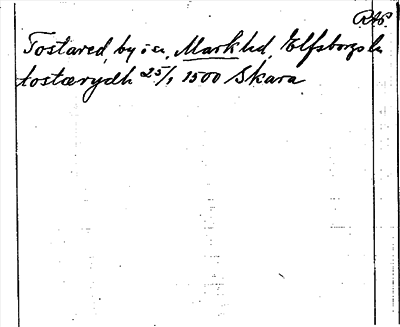 RAp
Tostared, by i sn, Mark hd, Elfsborgs ln
tostærydh 25/1 1500 Skara